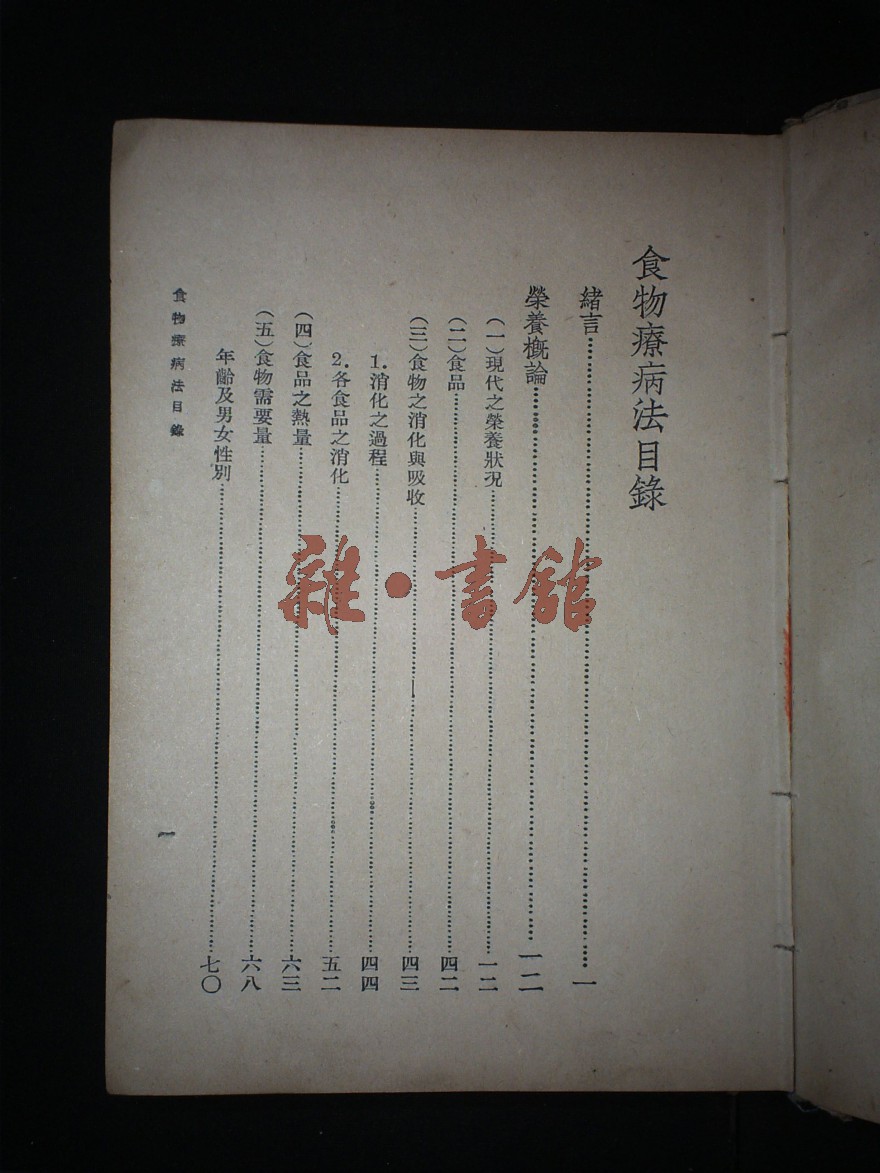 食物療病法目錄
緒言……一
榮養槪論……一二
(一)現代之榮養狀況……一二
(二)食品……四二
(三)食物之消化與吸收……四三
1.消化之過程……四四
2.各食品之消化……五二
(四)食品之熱量……六三
(五)食物需要量……六八
年齡及男女性別……七〇
食物療病法目錄
一
雜·書館